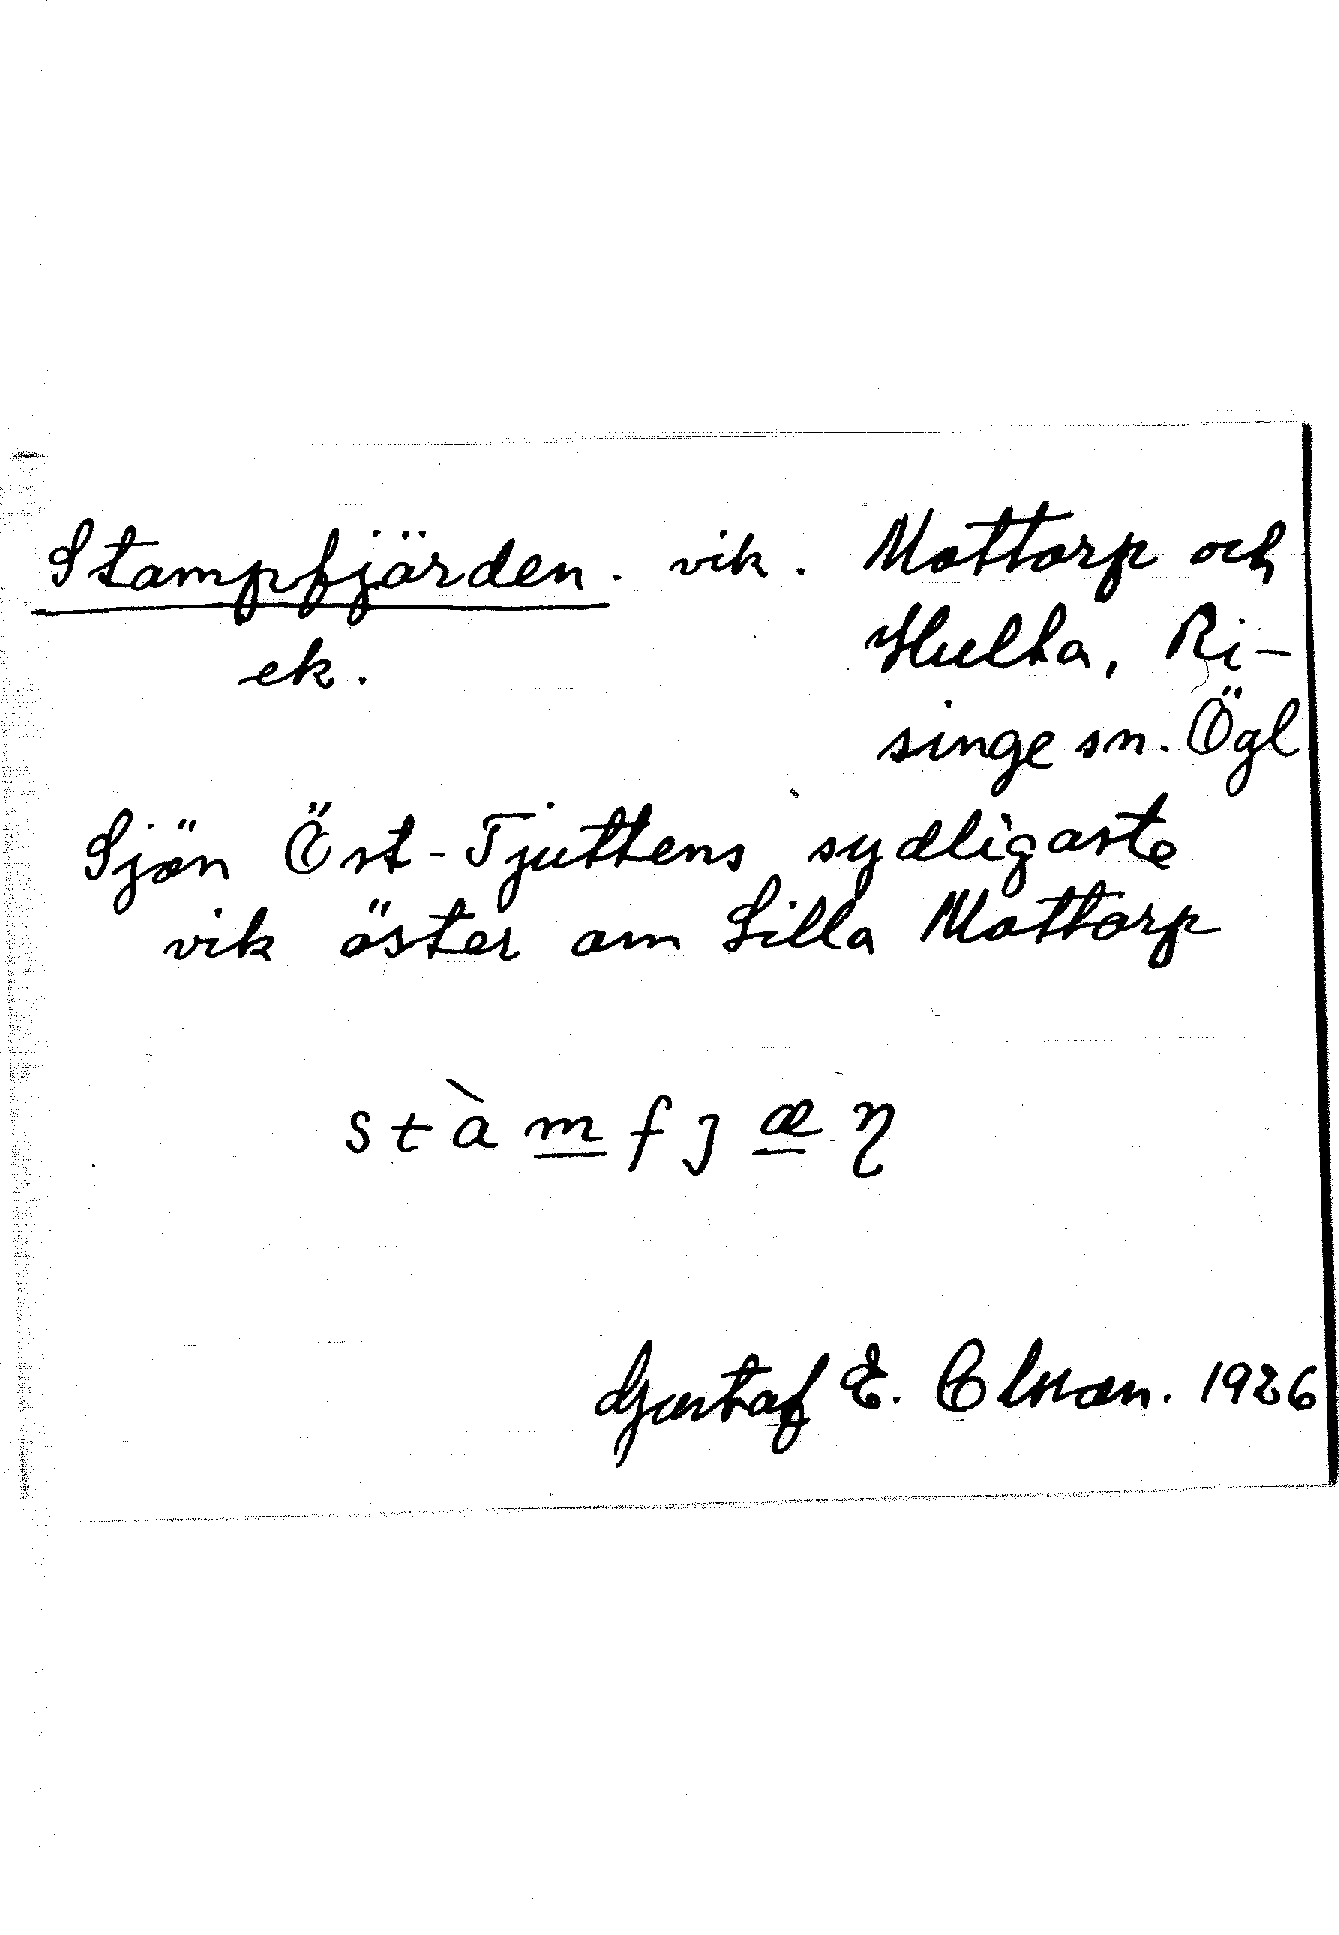 Stampfjärden. vik. Mottorp och
ek. Hulta, Ri-
singe sn. Ögl
Sjön Öst-Tjuttens sydligaste
vik öster om Lilla Mottorp
stàmfjæŋ
Gustaf E. 1926